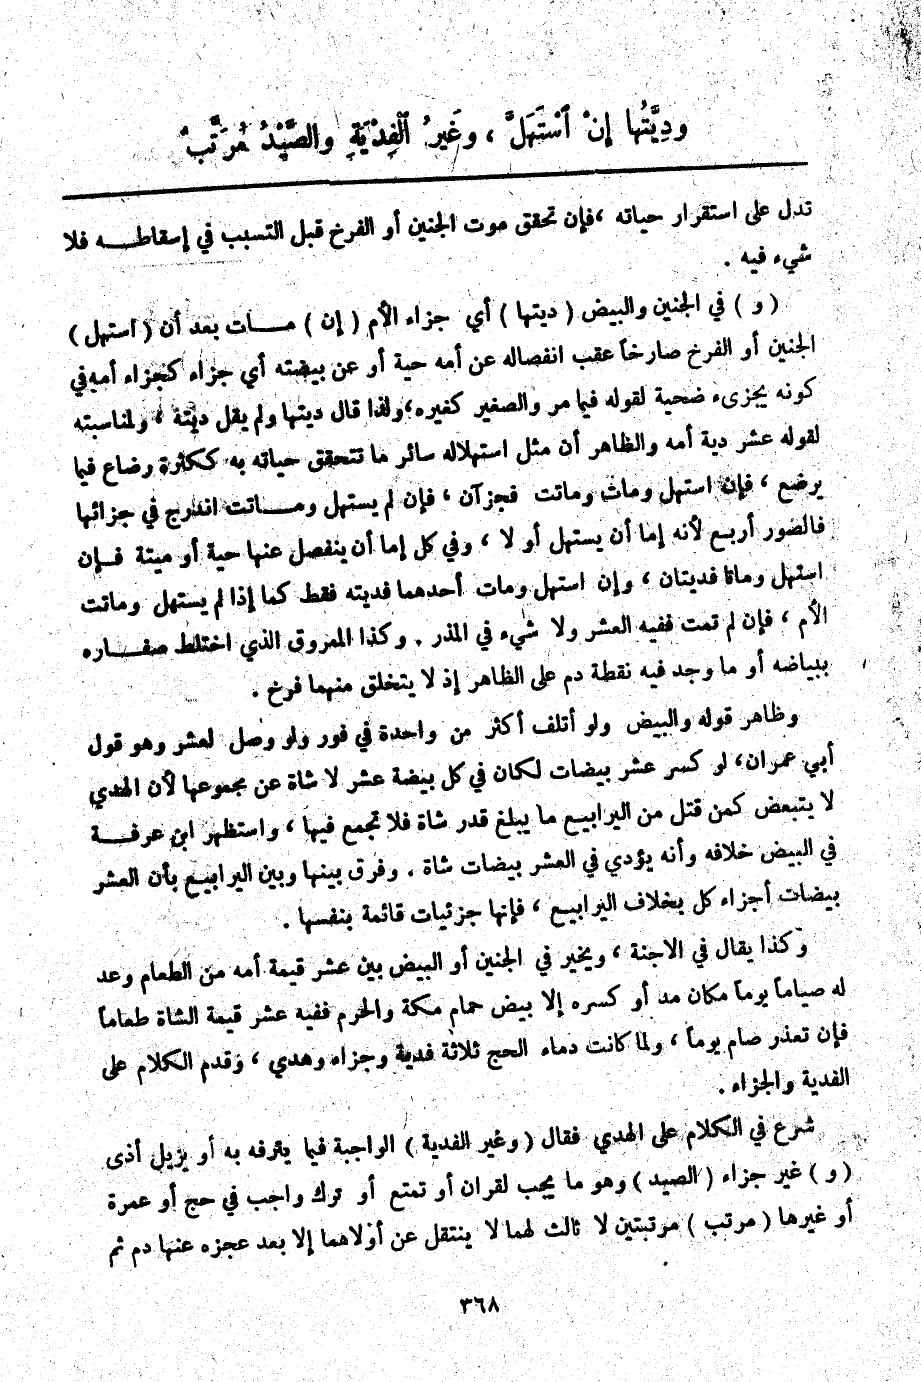 ودِيَّتُها إِنْ ٱسْتَهَلَّ ، وغَيرُ ٱلْفِدْيَةِ والصَّيْدُ مُرَتَّبٌ
تدل على استقرار حياته ، فإن تحقق موت الجنين أو الفرخ قبل التسبب في إسقاطه فلا
شيء فيه .
( و ) في الجنين والبيض ( ديتها ) أي جزاء الأم ( إن ) مات بعد أن ( استهل )
الجنين أو الفرخ صارخاً عقب انفصاله عن أمه حية أو عن بيضته أي جزاء كجزاء أمه في
كونه يجزىء ضحية لقوله فيما مر والصغير كغيره ، ولذا قال ديتها ولم يقل ديته ، ولمناسبته
لقوله عشر دية أمه والظاهر أن مثل استهلاله سائر ما تتحقق حياته به ككثرة رضاع فيما
يرضع ، فإن استهل ومات وماتت فجزآن ، فإن لم يستهل وماتت اندرج في جزائها
فالصور أربع لأنه إما أن يستهل أو لا ، وفي كل إما أن ينفصل عنها حية أو ميتة فإن
استهل وماتا فديتان ، وإن استهل ومات أحدهما فديته فقط كما إذا لم يستهل وماتت
الأم ، فإن لم تمت ففيه العشر ولا شيء في المذر . وكذا الممروق الذي اختلط صفاره
ببياضه أو ما وجد فيه نقطة دم على الظاهر إذ لا يتخلق منهما فرخ .
وظاهر قوله والبيض ولو أتلف أكثر من واحدة في فور ولو وصل لعشر وهو قول
أبي عمران ، لو كسر عشر بيضات لكان في كل بيضة عشر لا شاة عن مجموعها لأن الهدي
لا يتبعض كمن قتل من اليرابيع ما يبلغ قدر شاة فلا تجمع فيها ، واستظهر ابن عرفة
في البيض خلافه وأنه يؤدي في العشر بيضات شاة . وفرق بينها وبين اليرابيع بأن العشر
بيضات أجزاء كل بخلاف اليرابيع ، فإنها جزئيات قائمة بنفسها .
وكذا يقال في الاجنة ، ويخير في الجنين أو البيض بين عشر قيمة أمه من الطعام وعد
له صياماً يوماً مكان مد أو كسره إلا بيض حمام مكة والحرم ففيه عشر قيمة الشاة طعاماً
فإن تعذر صام يوماً ، ولما كانت دماء الحج ثلاثة فدية وجزاء وهدي ، وقدم الكلام على
الفدية والجزاء .
شرع في الكلام على الهدي فقال ( وغير الفدية ) الواجبة فيما يترفه به أو يزيل أذى
( و ) غير جزاء ( الصيد ) وهو ما يجب لقران أو تمتع أو ترك واجب في حج أو عمرة
أو غيرها ( مرتب ) مرتبتين لا ثالث لهما لا ينتقل عن أولاهما إلا بعد عجزه عنها دم ثم
٣٦٨